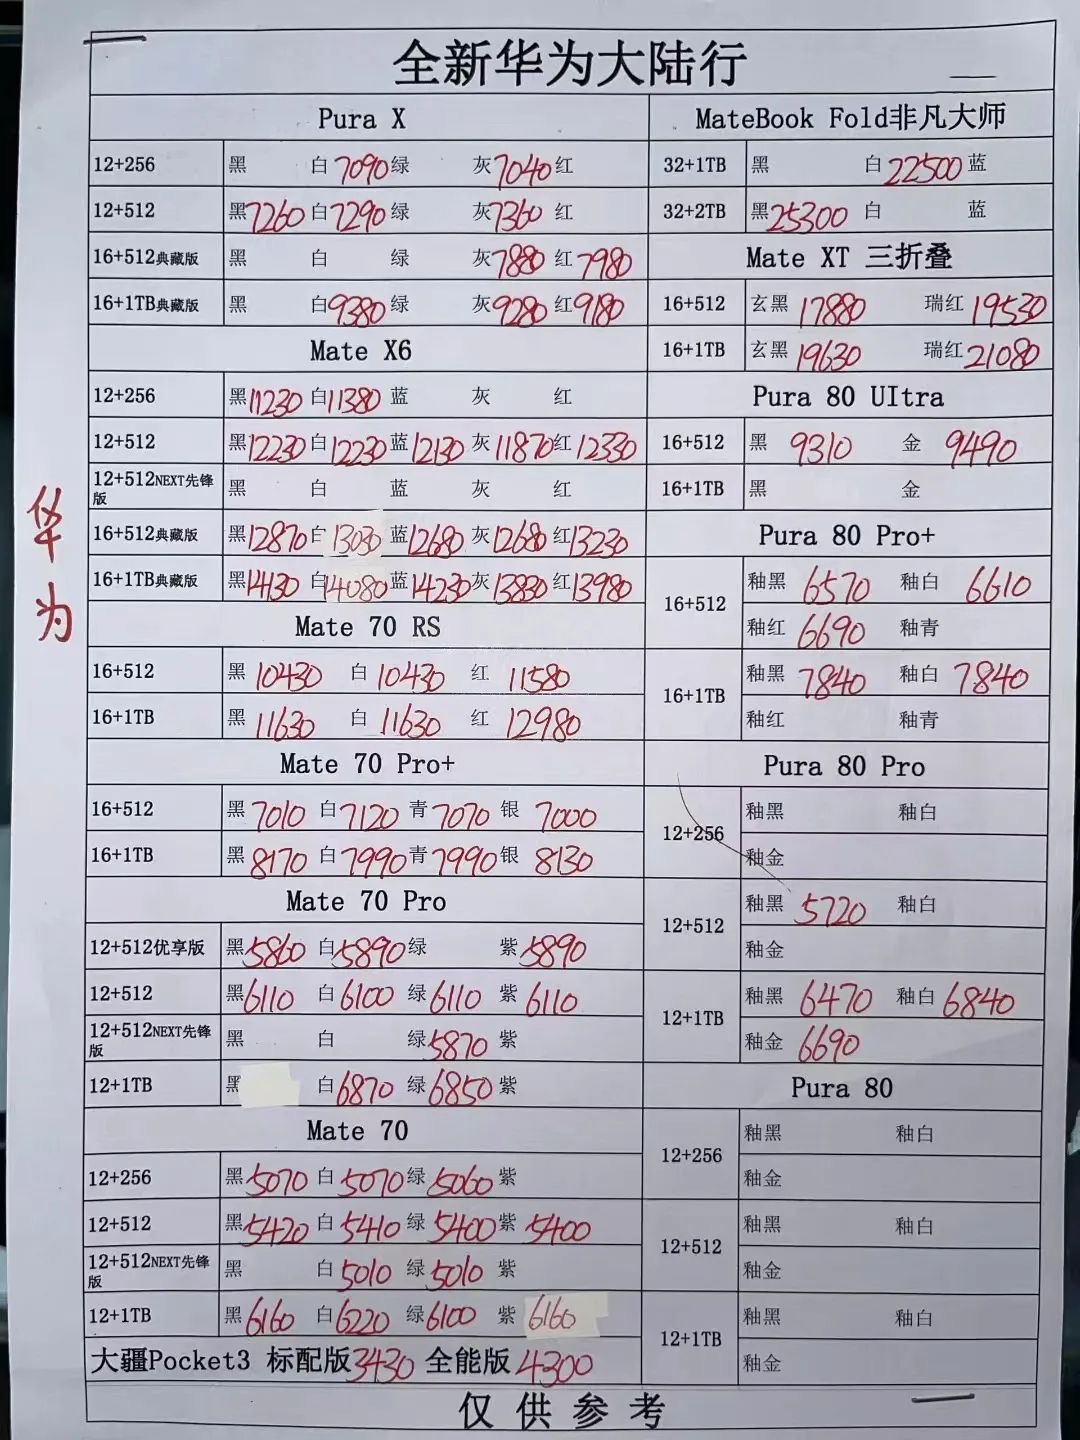 全新华为大陆行
华为
Pura X
12+256 黑 白7090 绿 灰7040 红
12+512 黑7260 白7290 绿 灰7360 红
16+512典藏版 黑 白 绿 灰7880 红7980
16+1TB典藏版 黑 白9380 绿 灰9280 红9180
Mate X6
12+256 黑11230 白11380 蓝 灰 红
12+512 黑12230 白12230 蓝12130 灰11870 红12330
12+512NEXT先锋版 黑 白 蓝 灰 红
16+512典藏版 黑12870 白13030 蓝12680 灰12680 红13230
16+1TB典藏版 黑14130 白14080 蓝14230 灰13830 红13980
Mate 70 RS
16+512 黑10430 白10430 红11580
16+1TB 黑11630 白11630 红12980
Mate 70 Pro+
16+512 黑7010 白7120 青7070 银7000
16+1TB 黑8170 白7990 青7990 银8130
Mate 70 Pro
12+512优享版 黑5860 白5890 绿 紫5890
12+512 黑6110 白6100 绿6110 紫6110
12+512NEXT先锋版 黑 白 绿5870 紫
12+1TB 黑 白6870 绿6850 紫
Mate 70
12+256 黑5070 白5070 绿5060 紫
12+512 黑5420 白5410 绿5400 紫5400
12+512NEXT先锋版 黑 白5010 绿5010 紫
12+1TB 黑6160 白6220 绿6100 紫6160
大疆Pocket3 标配版3430 全能版4300
MateBook Fold非凡大师
32+1TB 黑 白22500 蓝
32+2TB 黑25300 白 蓝
Mate XT 三折叠
16+512 玄黑17880 瑞红19530
16+1TB 玄黑19630 瑞红21080
Pura 80 UItra
16+512 黑9310 金9490
16+1TB 黑 金
Pura 80 Pro+
16+512 釉黑6570 釉白6610
釉红6690 釉青
16+1TB 釉黑7840 釉白7840
釉红 釉青
Pura 80 Pro
12+256 釉黑 釉白
釉金
12+512 釉黑5720 釉白
釉金
12+1TB 釉黑6470 釉白6840
釉金6690
Pura 80
12+256 釉黑 釉白
釉金
12+512 釉黑 釉白
釉金
12+1TB 釉黑 釉白
釉金
仅供参考